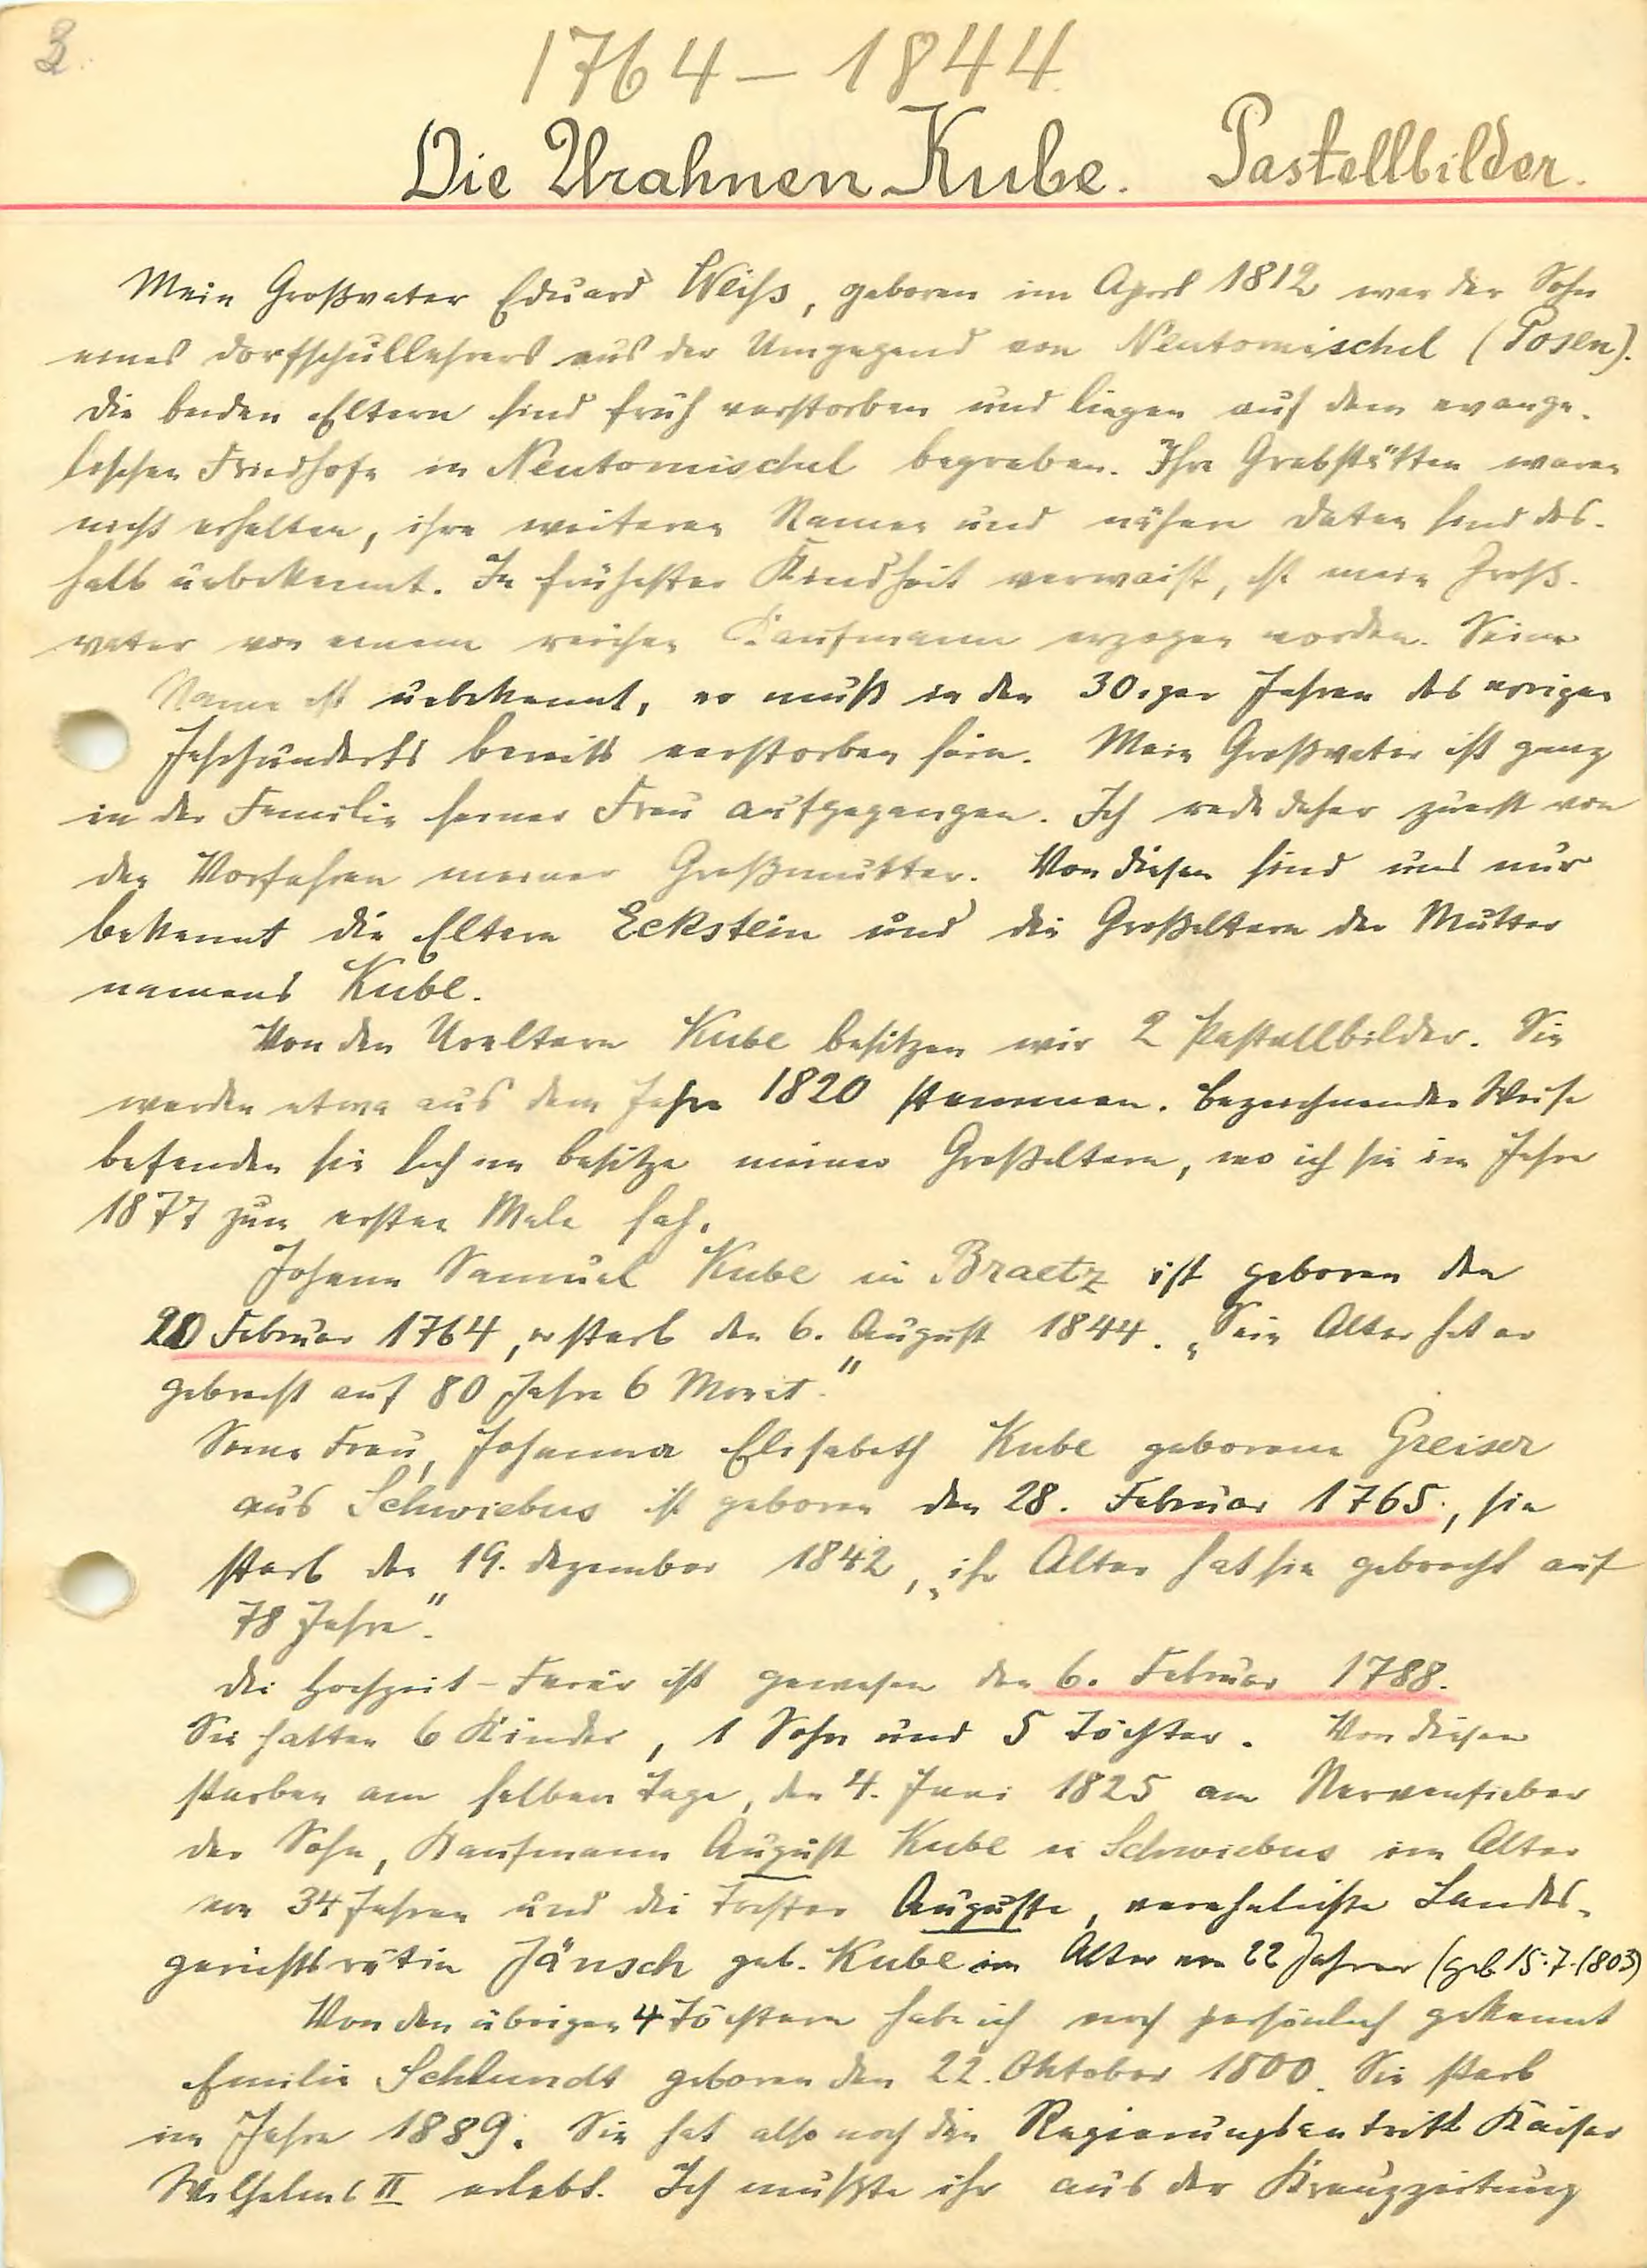 3.
1764 – 1844
Die Urahnen Kube. Pastellbilder.
Mein Großvater Eduard Weiss, geboren im April 1812 war der Sohn
eines Dorfschullehrers aus der Umgegend von Neutomischel (Posen).
Die beiden Eltern sind früh verstorben und liegen auf dem evange-
lischen Friedhofe in Neutomischel begraben. Ihre Grabstätten waren
nicht erhalten, ihre weiteren Namen und nähere Daten sind des-
halb unbekannt. In frühester Kindheit verwaist, ist mein Groß-
vater von einem reichen Kaufmann erzogen worden. Seine
Name ist unbekannt, er muß in den 30iger Jahren des vorigen
Jahrhunderts bereits verstorben sein. Mein Großvater ist ganz
in der Familie seiner Frau aufgegangen. Ich rede daher zuerst von
den Vorfahren meiner Großmutter. Von diesen sind uns nur
bekannt die Eltern Eckstein und die Großeltern der Mutter
namens Kube.
Von den Ureltern Kube besitzen wir 2 Pastellbilder. Sie
werden etwa aus dem Jahre 1820 stammen. Bezeichnender Weise
befanden sie sich im Besitze meiner Großeltern, wo ich sie im Jahre
1877 zum ersten Male sah.
Johann Samuel Kube in Braetz ist geboren den
20 Februar 1764, er starb den 6. August 1844. „Sein Alter hat er
gebracht auf 80 Jahre 6 Monat."
Seine Frau, Johanna Elisabeth Kube geborene Greiser
aus Schwiebus ist geboren den 28. Februar 1765, sie
starb den 19. Dezember 1842, „ihr Alter hat sie gebracht auf
78 Jahre".
Die Hochzeit-Feier ist gewesen den 6. Februar 1788.
Sie hatten 6 Kinder, 1 Sohn und 5 Töchter. Von diesen
starben am selben Tage, den 4. Juni 1825 am Nervenfieber
der Sohn, Kaufmann August Kube in Schwiebus im Alter
von 34 Jahren und die Tochter Auguste, verehelichte Landes-
gerichtsrätin Jänsch geb. Kube im Alter von 22 Jahren (geb 15.7.1803)
Von den übrigen 4 Töchtern habe ich noch persönlich gekannt
Emilie Schlundt geboren den 22. Oktober 1800. Sie starb
im Jahre 1889. Sie hat also noch den Regierungsantritt Kaiser
Wilhelms II erlebt. Ich mußte ihr aus der Kreuzzeitung